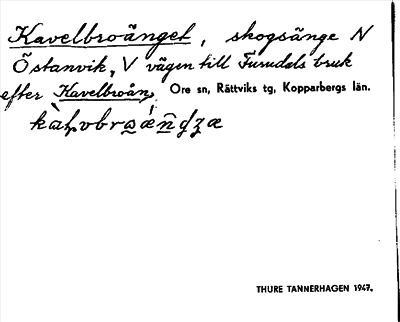 Kavelbroänget, skogsänge N
Östanvik, V vägen till Furudals bruk
efter Kavelbroån, Ore sn, Rättviks tg, Kopparbergs län.
THURE TANNERHAGEN 1947.